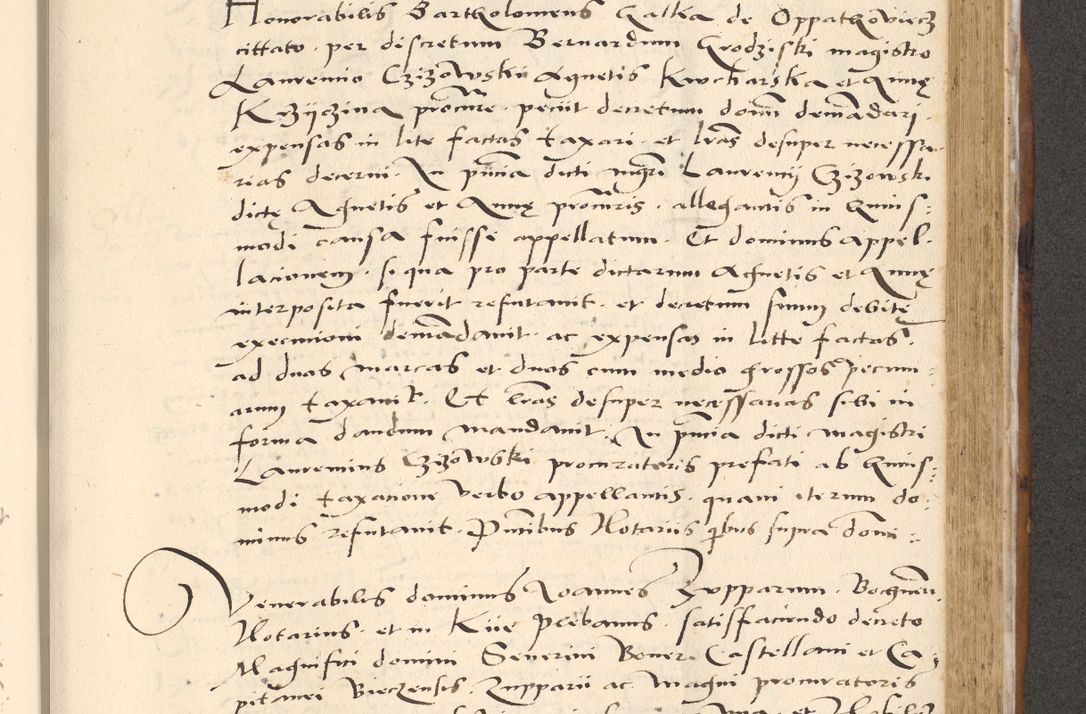 Honorabilis Bartholomeus Gallia de Oppathoviecz
cittato per discretum Bernardum Grodziski magistro
Laurentio Czizowskii Agnetis Kucharska et Annę
Krzÿczina procure peciit decretum domi demãdari
expensas in lite factas taxari et lras desuper necessa-
rias decerni. In pñcia dicti mgri Laurencij Czizowski
dictę Agnetis et Annę procuris allegantis in huius-
modi causa fuisse appellatum. Et dominus appel-
lacionem si qua pro parte dictarum Agnetis et Annę
interposita fuerit refutavit et decretum suum debitę
execucioni demãdavit ac expensas in litte factas
ad duas marcas et duos cum medio grossos pecuni-
arum taxavit. Et lras desuper necessarias sibi in
forma dandum mandavit. In pñcia dicti magistri
Laurentius Czizowski procuratoris prefati ab huius-
modi taxatione verbo appellantis quam iterum do-
minus refutavit. Pñtibus Notariis qibus supra domi-
Venerabilis dominus Joannes Zupparum Bochneñ
Notarius et in Kiie plebanus satisfaciendo decreto
Magnifici domini Severini Boner Castellani et Ca-
pitanei Bieczensis Zupparii ac magni procuratoris